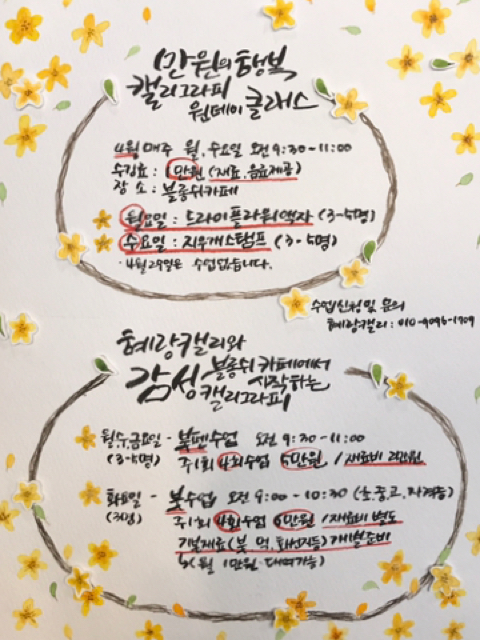 1만원의 행복
캘리그라피
원데이 클래스
4월 매주 월, 수요일 오전 9:30-11:00
수강료 : 1만원 (재료, 음료제공)
장소 : 블롱쉬카페
월요일 : 드라이플라워액자 (3-5명)
수요일 : 지우개스탬프 (3-5명)
· 4월 29일은 수업없습니다.
수업신청 및 문의
혜랑캘리 : 010-9096-1709
혜랑캘리와
감성 블롱쉬 카페에서
시작하는
캘리그라피
월,수,금요일 - 붓펜수업 오전 9:30-11:00
(3-5명) 주1회 4회수업 5만원 / 재료비 2만원
화요일 - 붓수업 오전 9:00-10:30 (초,중,고, 자격증)
(3명) 주1회 4회수업 6만원 / 재료비 별도
기본재료 (붓, 먹, 화선지등) 개별준비
(월 1만원 대여가능)